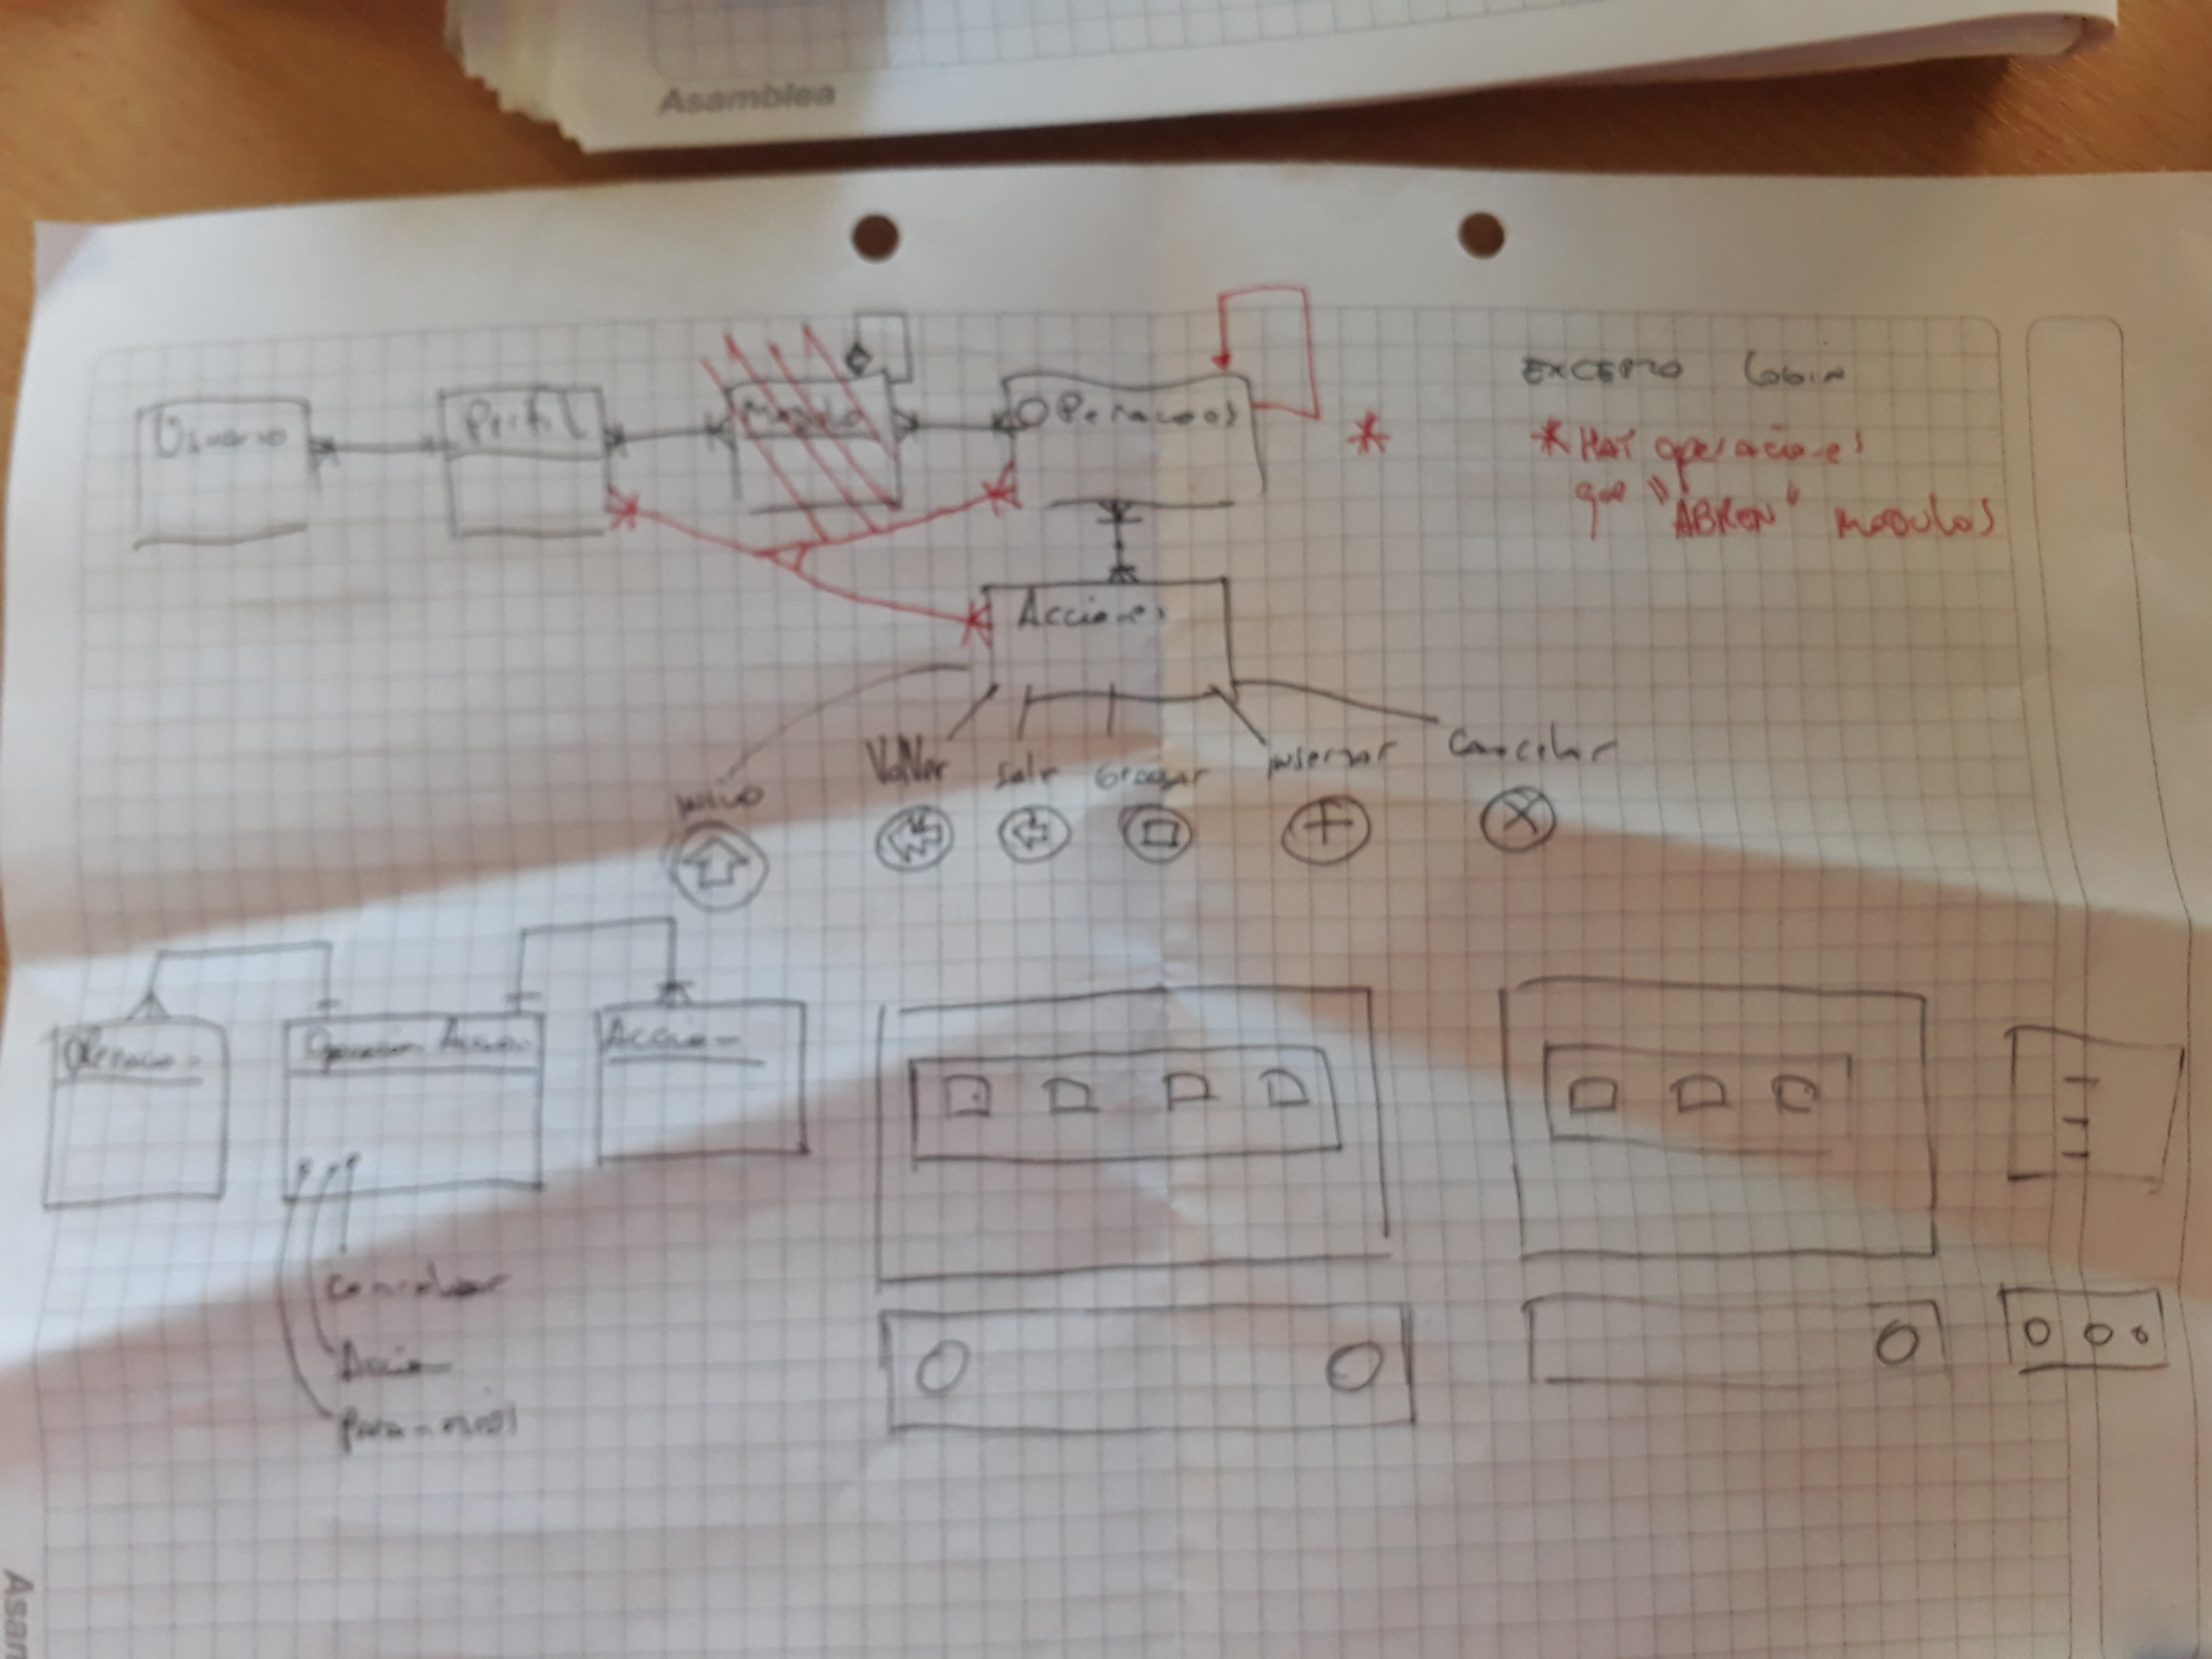 Asamblea
Usuario
Perfil
Modulo
Operaciones
EXCEPTO Login
*
* HAY operaciones
que "ABREN" modulos
Acciones
Inicio
Volver
Salir
Grabar
Insertar
Cancelar
Operacion
Operacion Accion
Accion
Controlador
Accion
Parametros
Asam